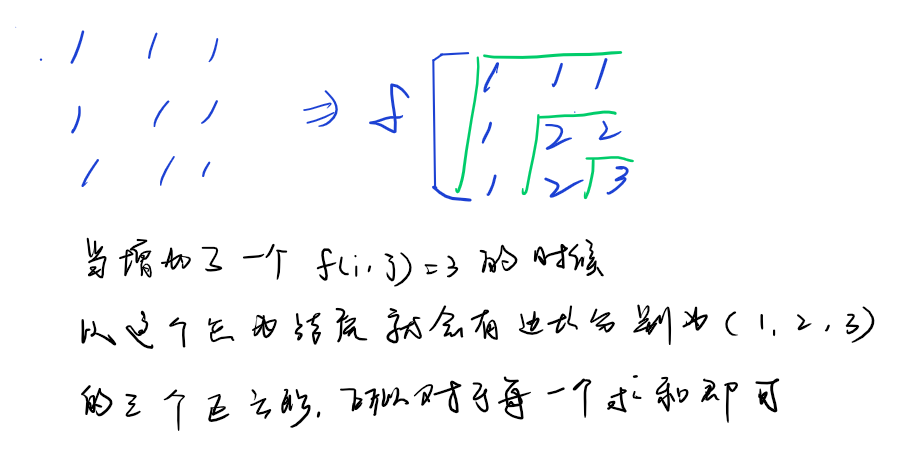 1 1 1 1 1 1
1 1 1 ⇒ f 1 2 2
1 1 1 1 2 3
当增加了一个 f(i,j)=3 的时候
以这个它为结尾就会有边长分别为(1,2,3)
的三个正方形,所以对于每一个求和即可